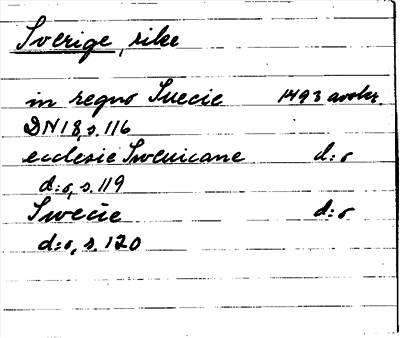 Sverige, rike
in regno Suecie 1493 avskr.
DN 18, s. 116
ecclesie Swenicane d:o
d:o, s. 119
Swecie d:o
d:o, s. 120